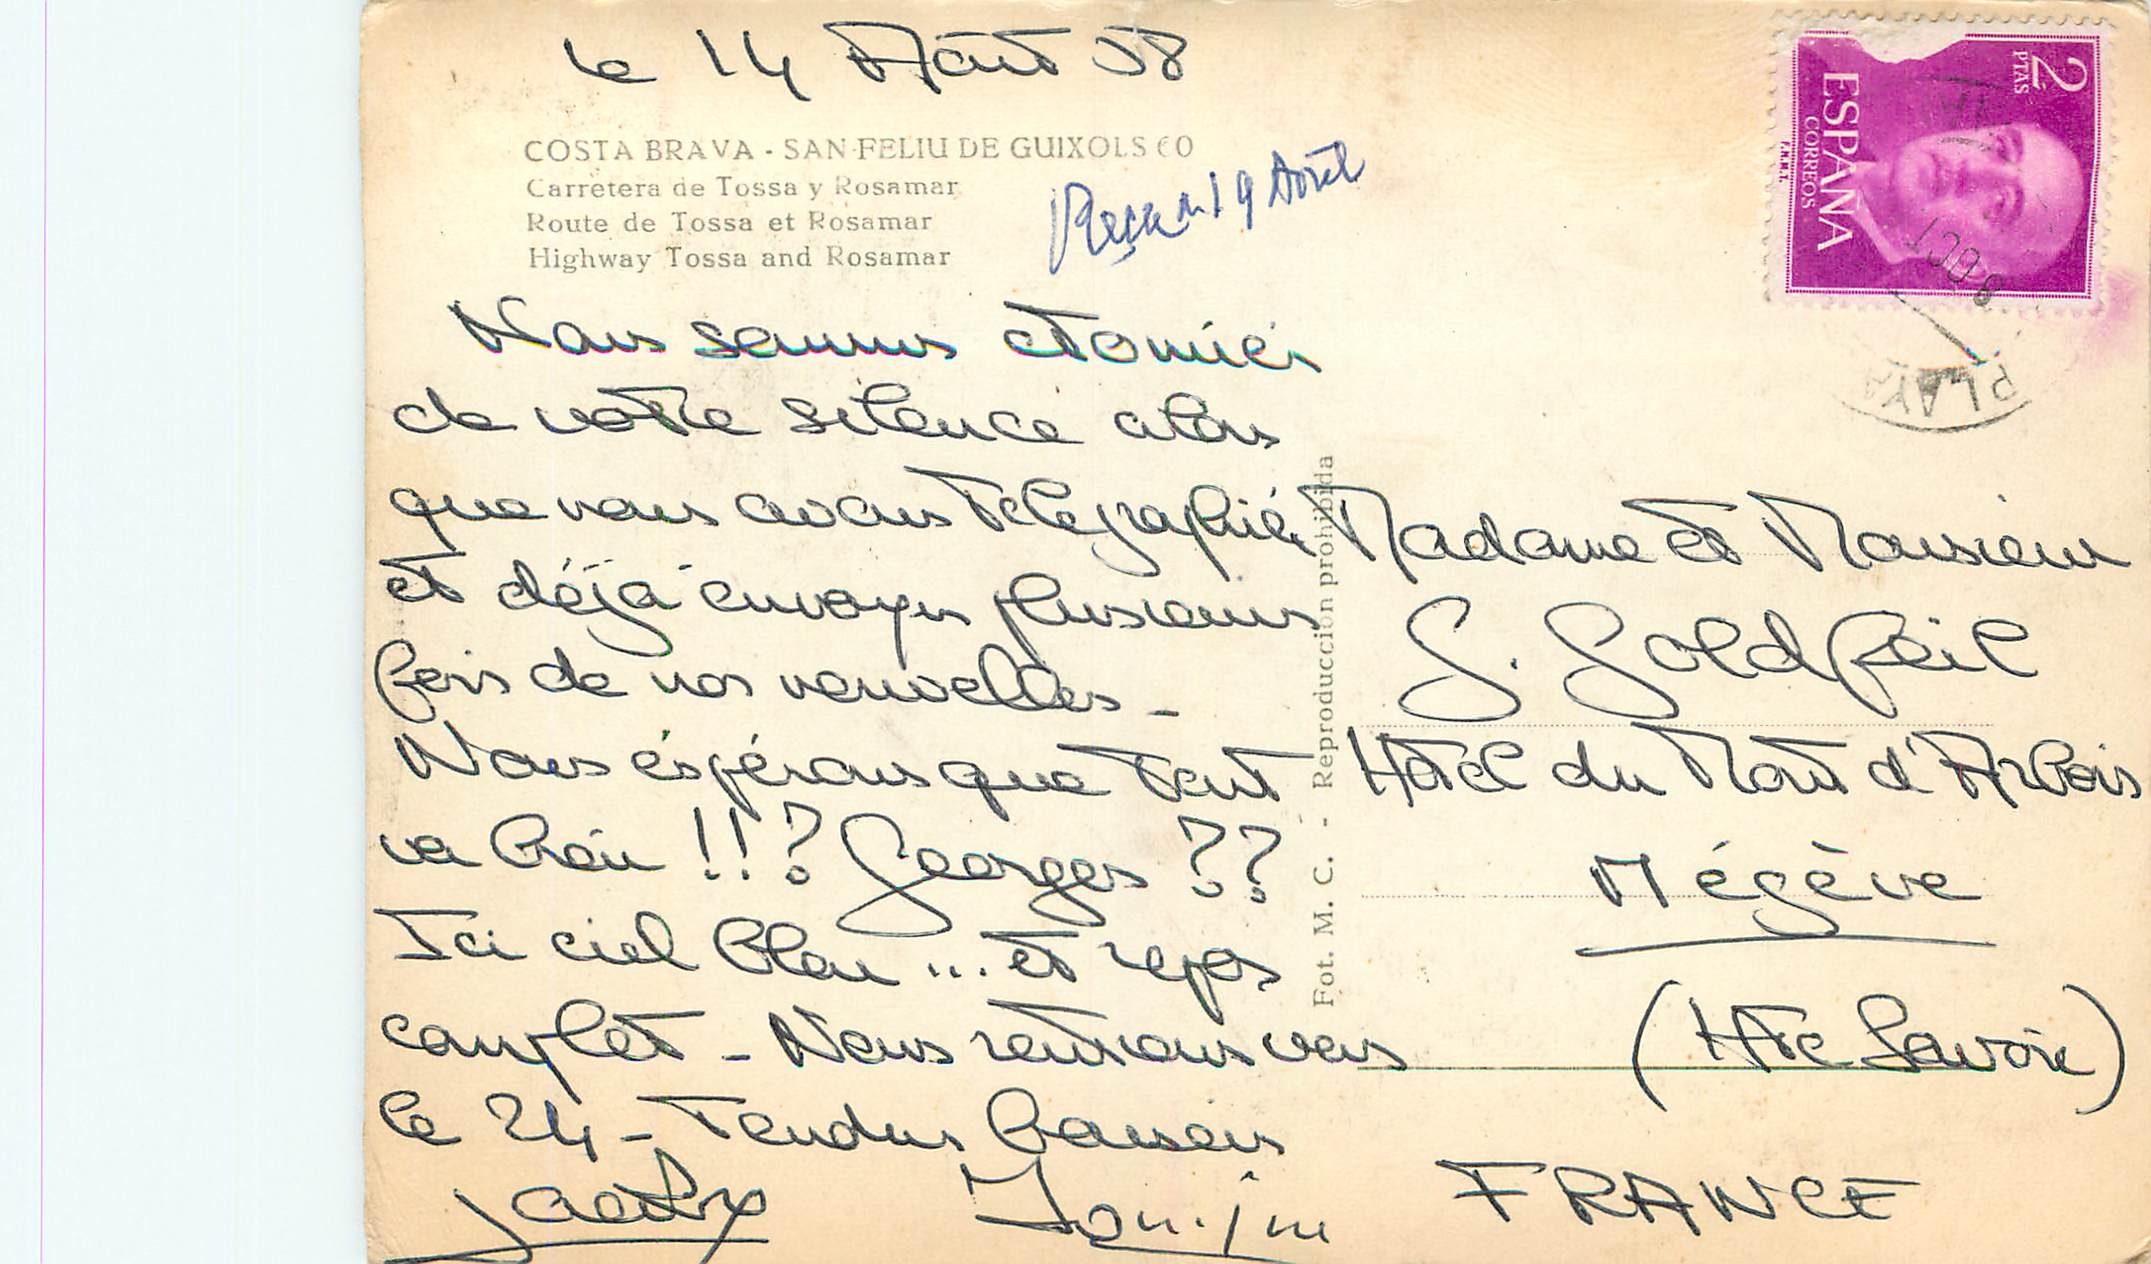 le 14 Août 58
COSTA BRAVA - SAN FELIU DE GUIXOLS 60
Carretera de Tossa y Rosamar
Route de Tossa et Rosamar
Highway Tossa and Rosamar
Reçu 19 Avril
Nous sommes étonnés
de votre silence alors
que nous avons télégraphié
et déjà envoyés plusieurs
fois de nos nouvelles -
Nous éspérons que tout
va bien !!? Georges ??
Ici ciel bleu ... et repos
complet - Nous rentrons vers
le 24 - Tendres baisers
Fot. M. C. - Reproduccion prohibida
Madame et Monsieur
G. Goldfeil
Hôtel du Mont d'Arbois
Mégève
(Hte Savoie)
FRANCE
2 PTAS
ESPAÑA
CORREOS
F.N.M.T.
8 OCT
PLAYA